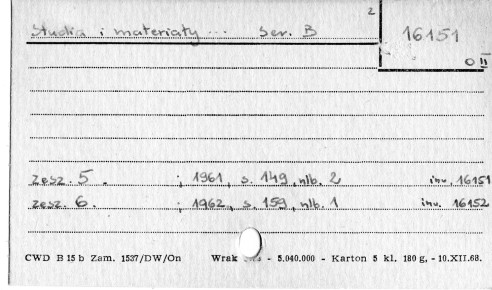 2
Studia i materiały ... Ser. B
16151
O II
zesz. 5. ; 1961, s. 149, nlb. 2 inw. 16151
zesz. 6. ; 1962, s. 159, nlb. 1 inw. 16152
CWD B 15 b Zam. 1537/DW/On Wrak - 5.040.000 - Karton 5 kl. 180 g, - 10.XII.68.